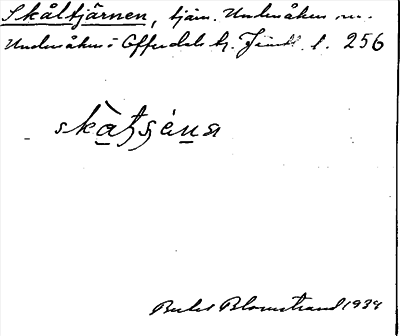 Skåltjärnen, tjärn. Undersåkers sn.
Undersåkers i Offerdals tg. Jämtl. l. 256
skàtʒèna
Blomstrand 1934